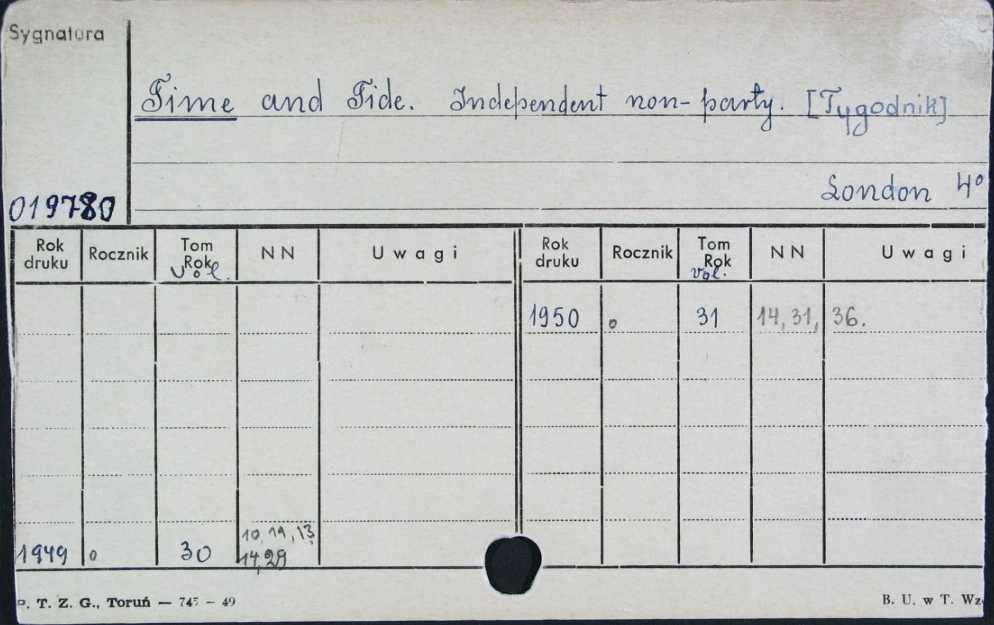 Sygnatura
Time and Tide. Independent non-party. [Tygodnik]
London 4°
019780
Rok druku Rocznik Tom Rok vol. NN Uwagi Rok druku Rocznik Tom Rok vol. NN Uwagi
1950 o 31 14, 31, 36.
10, 11, 13,
1949 o 30 14, 29
P. T. Z. G., Toruń — 745 – 49 B. U. w T. Wz